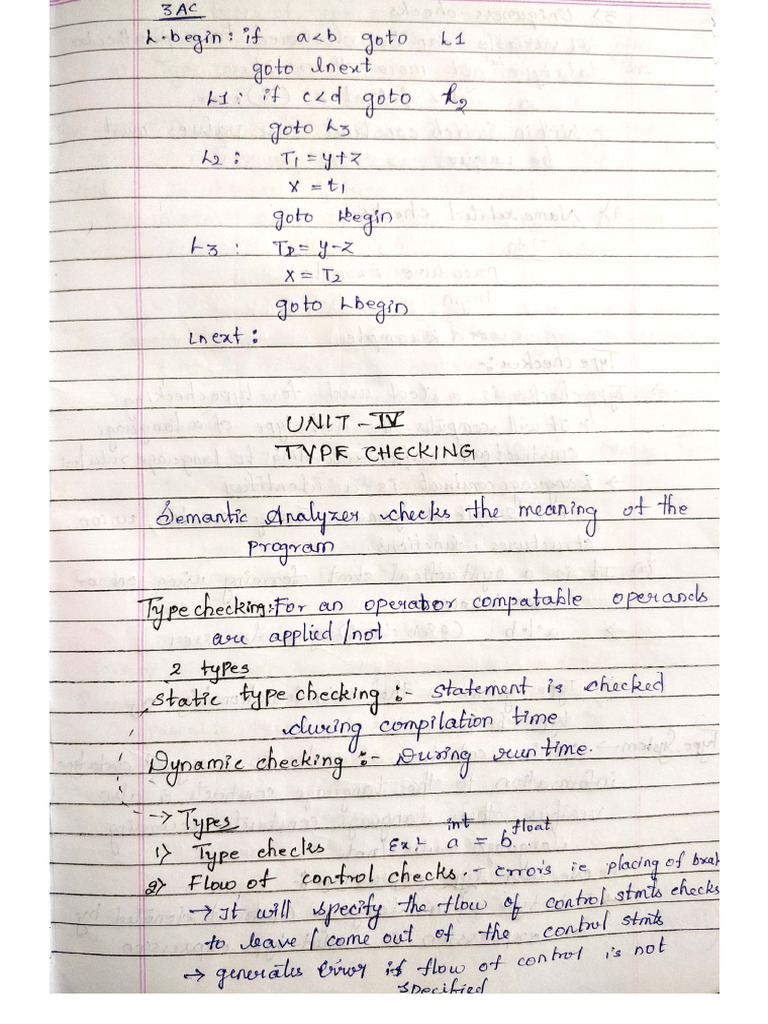 3AC
L.begin: if a<b goto L1
goto lnext
L1: if c<d goto L2
goto L3
L2: T1 = y+z
x = t1
goto Lbegin
L3: T2 = y-z
x = T2
goto Lbegin
Lnext:
UNIT - IV
TYPE CHECKING
Semantic Analyzer checks the meaning of the
program
Type checking: For an operator compatable operands
are applied/not
2 types
Static type checking :- statement is checked
during compilation time
Dynamic checking :- During runtime.
→ Types
1) Type checks Ex:- int a = b float
2) Flow of control checks. - errors ie placing of break
→ It will specify the flow of control stmts checks
to leave / come out of the control stmts
→ generates Error if flow of control is not
specified